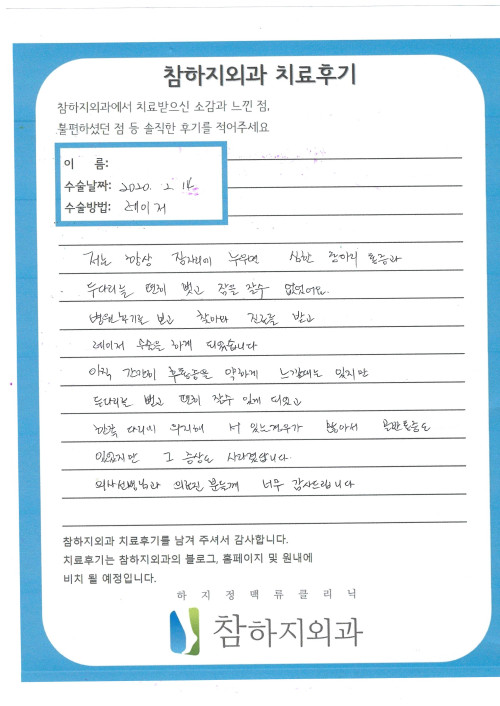 참하지외과 치료후기
참하지외과에서 치료받으신 소감과 느낀 점,
불편하셨던 점 등 솔직한 후기를 적어주세요
이 름:
수술날짜: 2020. 2. 14
수술방법: 레이저
저는 항상 잠자리에 누우면 심한 종아리 통증과
두다리를 뻗고 잠을 잘수 없었어요.
병원후기를 보고 찾아와 진료를 받고
레이저 수술을 하게 되었습니다
아직 간간히 후통증을 약하게 느낄때도 있지만
두다리를 뻗고 편히 잘수 있게 되었고
한쪽 다리에 의지해 서 있는경우가 많아서 골반통증도
있었지만 그 증상도 사라졌습니다.
의사선생님과 의료진 분들께 너무 감사드립니다
참하지외과 치료후기를 남겨 주셔서 감사합니다.
치료후기는 참하지외과의 블로그, 홈페이지 및 원내에
비치 될 예정입니다.
하지정맥류클리닉
참하지외과